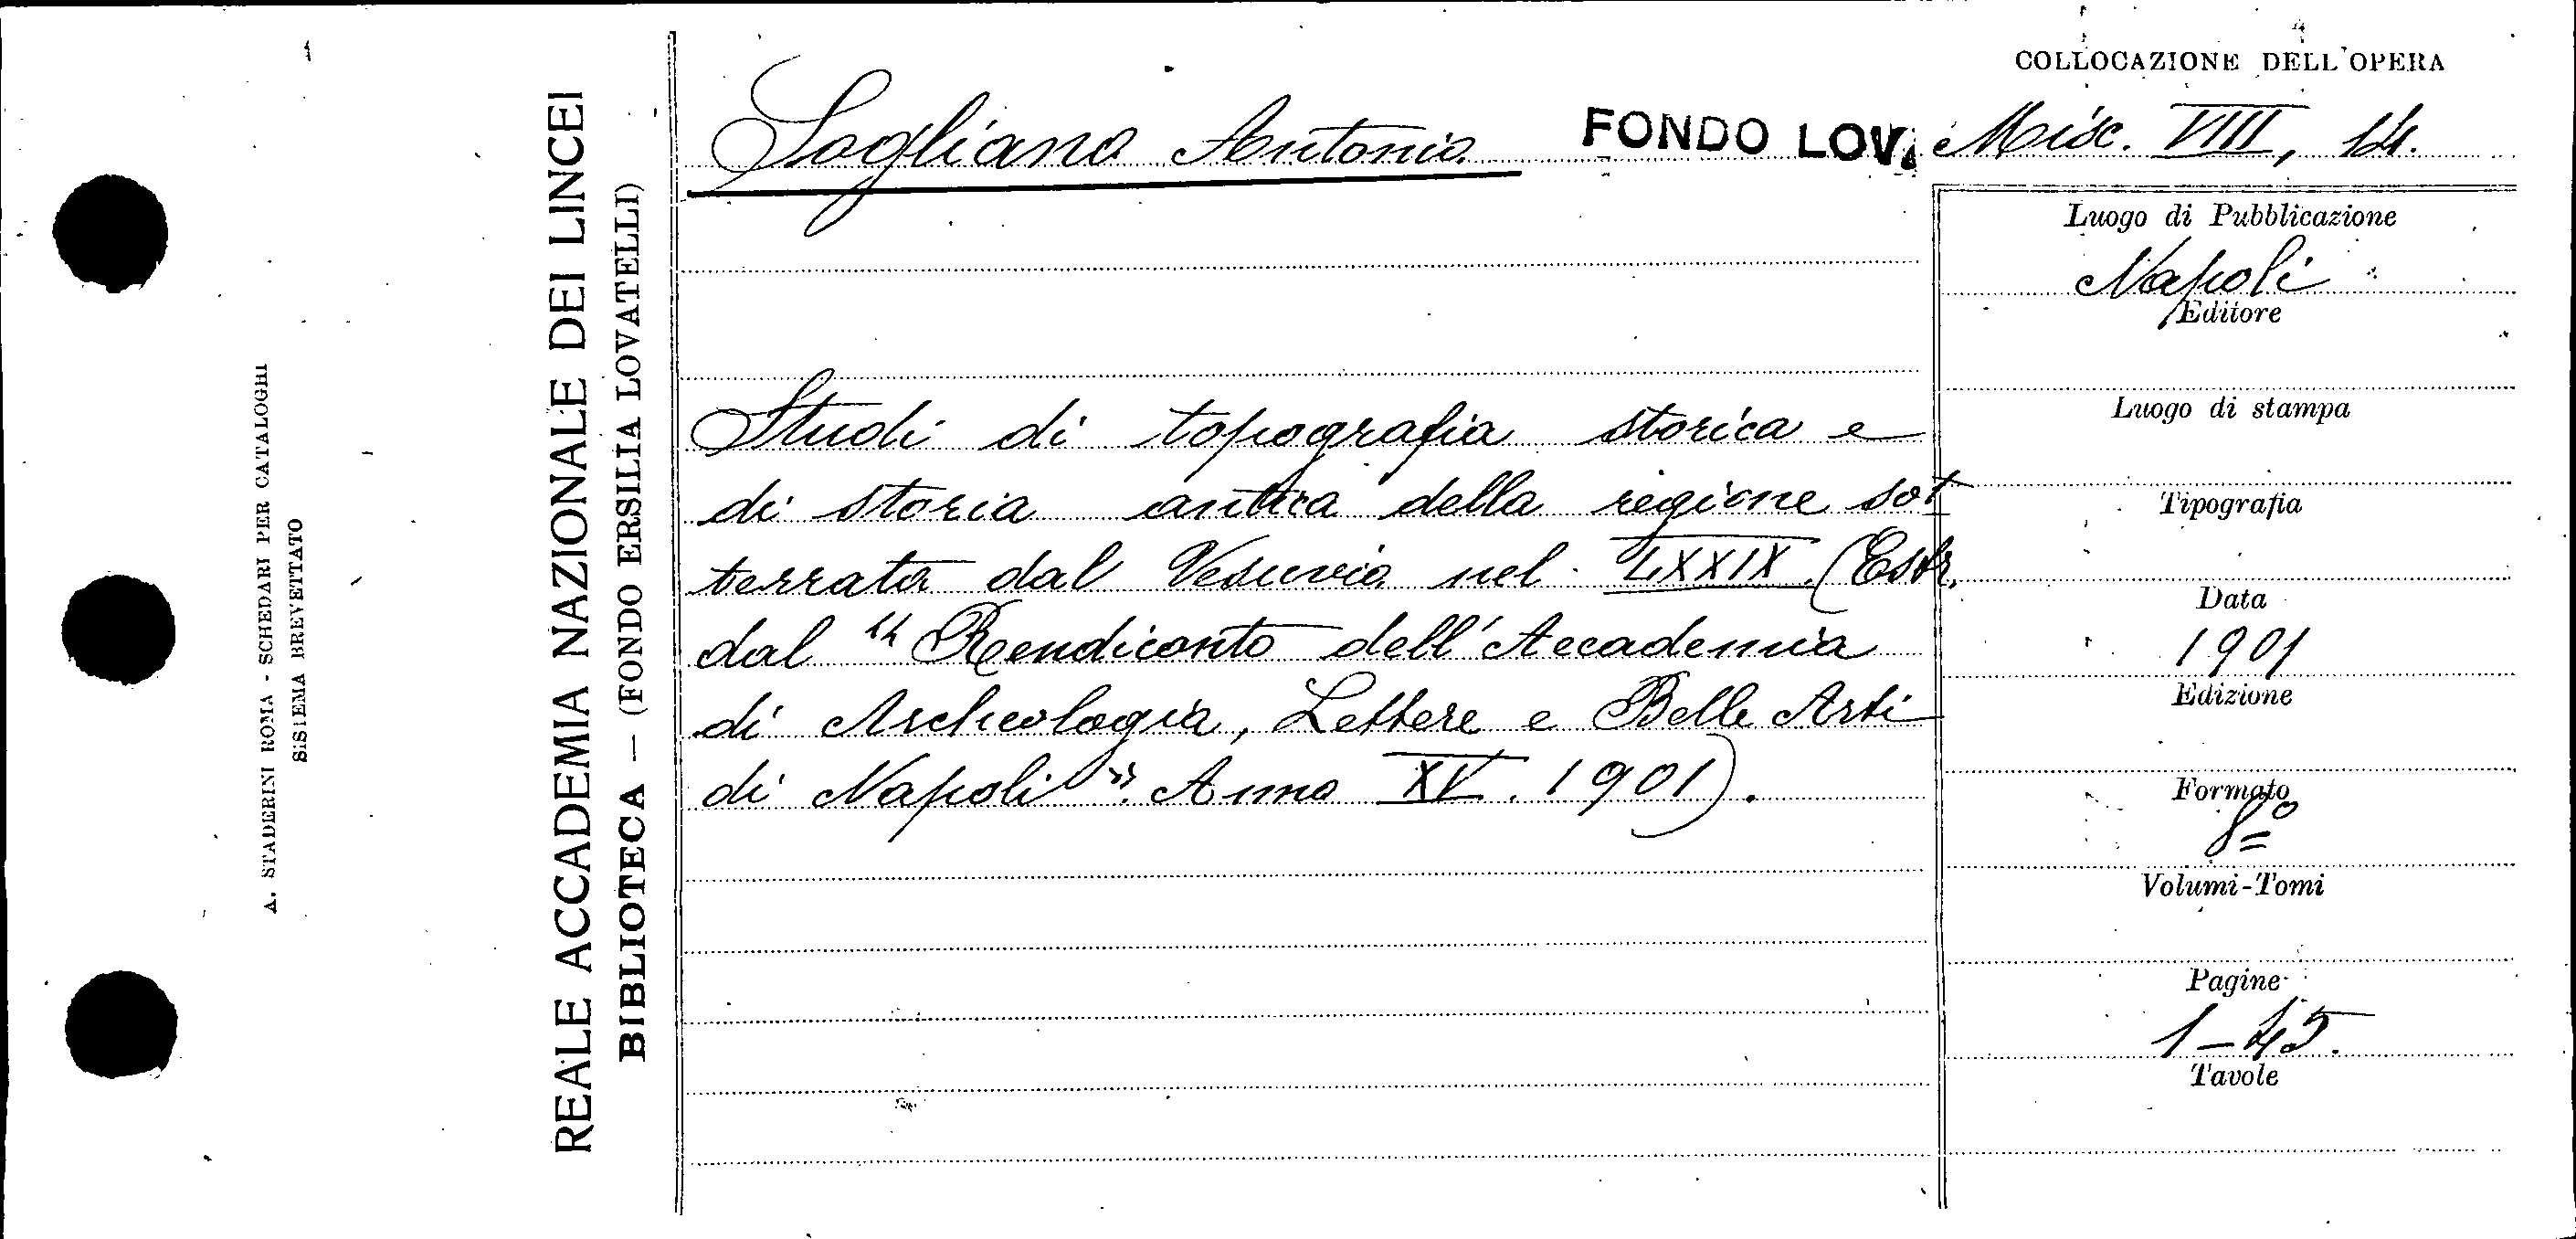 A. STADERINI ROMA - SCHEDARI PER CATALOGHI
SISTEMA BREVETTATO
REALE ACCADEMIA NAZIONALE DEI LINCEI
BIBLIOTECA — (FONDO ERSILIA LOVATELLI)
COLLOCAZIONE DELL'OPERA
Sogliano Antonio FONDO LOV. Misc. VIII, 14.
Studi di topografia storica e
di storia antica della regione sot
terrata dal Vesuvio nel LXXIX. (Estr.
dal "Rendiconto dell'Accademia
di Archeologia, Lettere e Belle Arti
di Napoli". Anno XV. 1901).
Luogo di Pubblicazione
Napoli
Editore
Luogo di stampa
Tipografia
Data
1901
Edizione
Formato
8º
Volumi-Tomi
Pagine
1-45.
Tavole